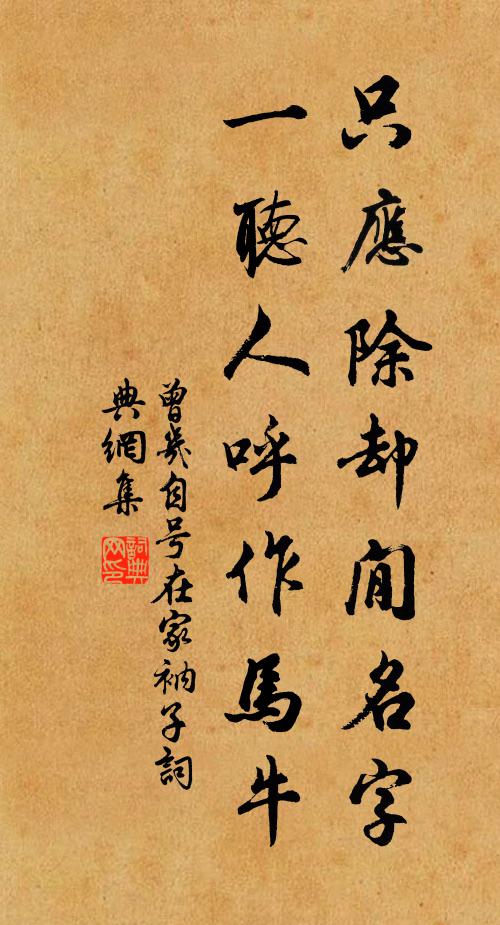 只應除却閒名字
一聽人呼作馬牛
曾幾自号在家衲子詞
典網集
詞典
网印